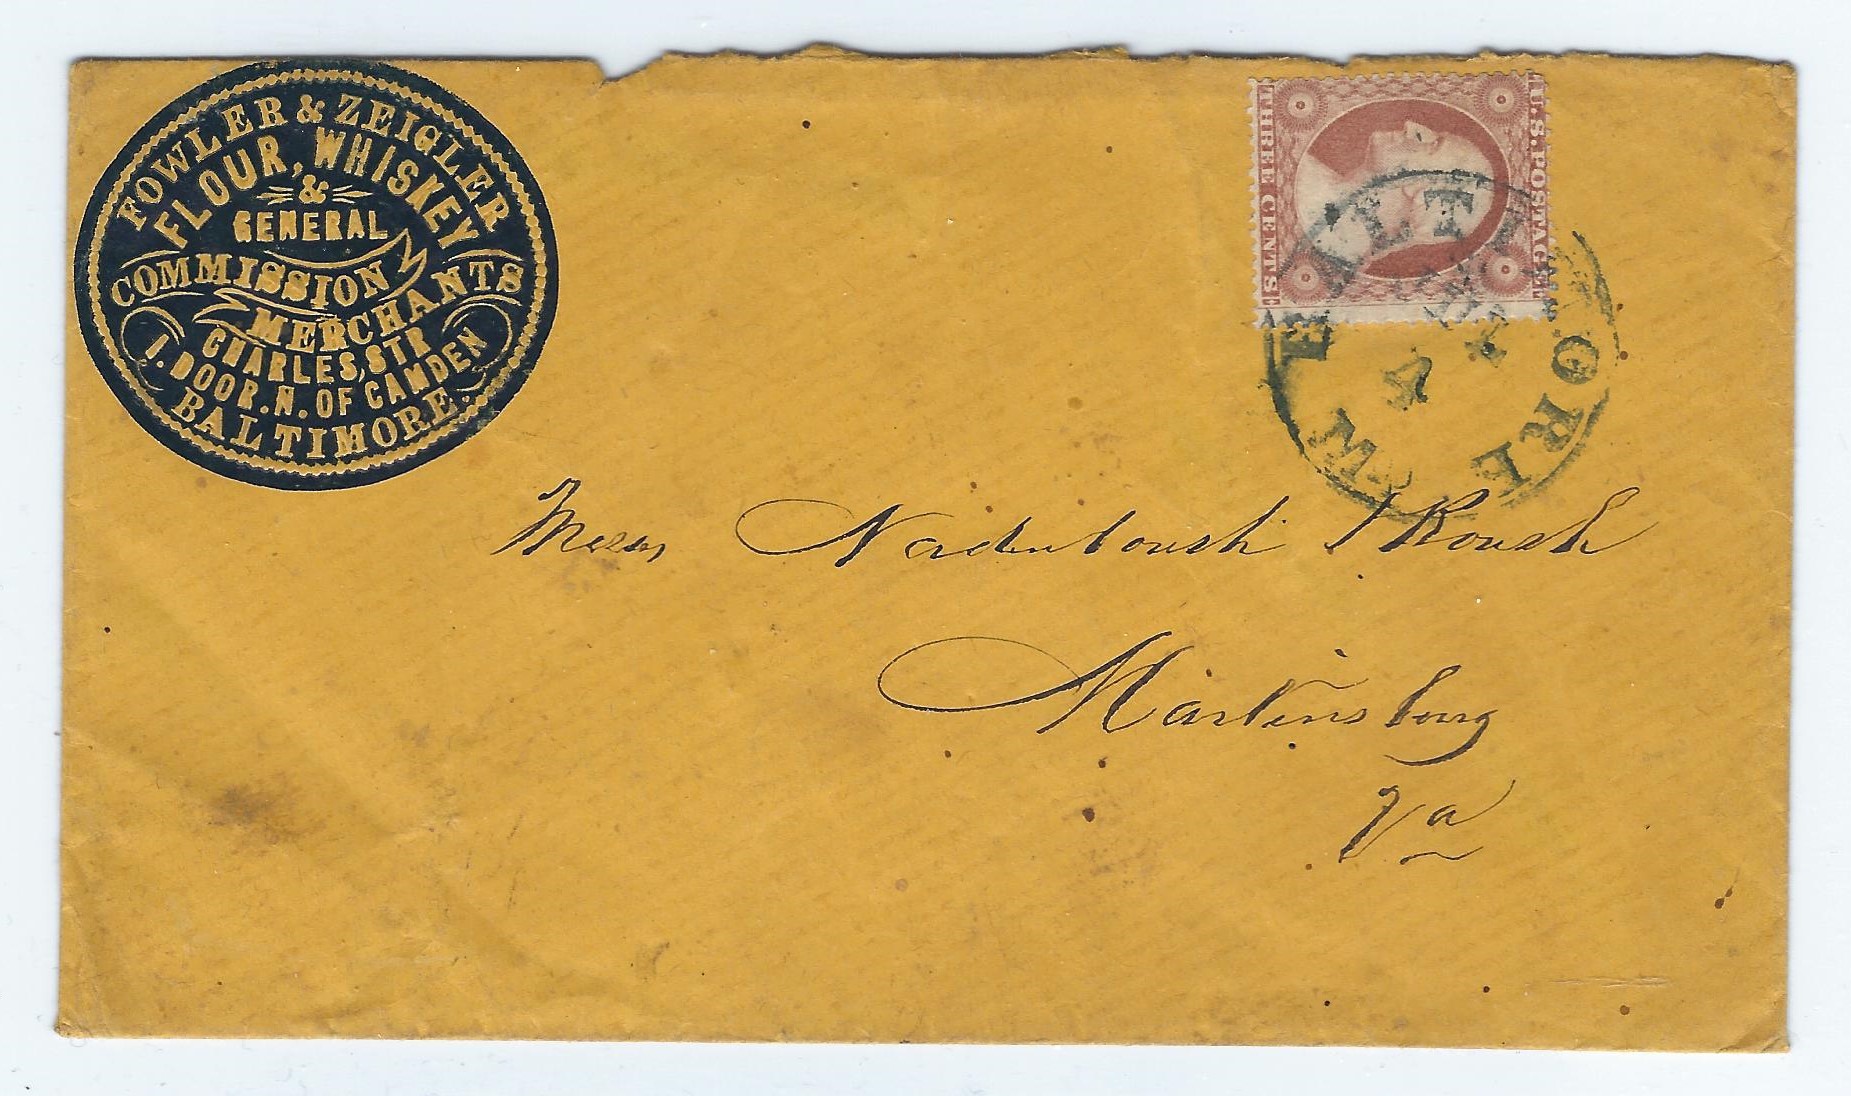 FOWLER & ZEIGLER
FLOUR, WHISKEY
&
GENERAL
COMMISSION
MERCHANTS
CHARLES, STR
1. DOOR. N. OF CAMDEN
BALTIMORE.
U.S. POSTAGE
THREE CENTS
BALTIMORE
4
Messrs Nadenbousch & Roush
Martinsburg
Va